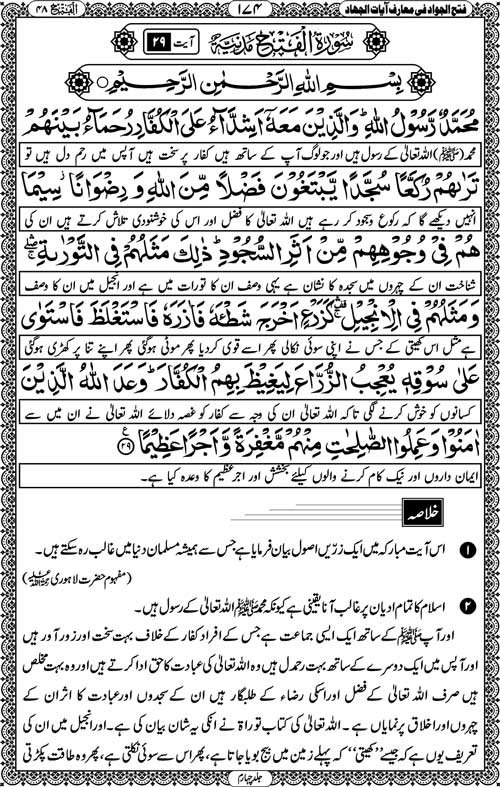 فتح الجواد فی معارف آیات الجهاد ۱۷۴ الفتح ۴۸
سورة الفتح مدنیة آیت ۲۹
بسم الله الرحمن الرحیم
مُحَمَّدٌ رَّسُوْلُ اللهِ وَالَّذِيْنَ مَعَهٗۤ اَشِدَّآءُ عَلَى الْكُفَّارِ رُحَمَآءُ بَيْنَهُمْ
محمد (ﷺ) اللہ تعالیٰ کے رسول ہیں اور جو لوگ آپ کے ساتھ ہیں کفار پر سخت ہیں آپس میں رحم دل ہیں تو
تَرٰىهُمْ رُكَّعًا سُجَّدًا يَّبْتَغُوْنَ فَضْلًا مِّنَ اللهِ وَرِضْوَانًا سِيْمَا
انہیں دیکھے گا کہ رکوع و سجود کر رہے ہیں اللہ تعالیٰ کا فضل اور اس کی خوشنودی تلاش کرتے ہیں ان کی
هُمْ فِيْ وُجُوْهِهِمْ مِّنْ اَثَرِ السُّجُوْدِ ذٰلِكَ مَثَلُهُمْ فِي التَّوْرٰىةِ
شناخت ان کے چہروں میں سجدہ کا نشان ہے یہی وصف ان کا تورات میں ہے اور انجیل میں ان کا وصف
وَمَثَلُهُمْ فِي الْاِنْجِيْلِ كَزَرْعٍ اَخْرَجَ شَطْـَٔهٗ فَاٰزَرَهٗ فَاسْتَغْلَظَ فَاسْتَوٰى
ہے مثل اس کھیتی کے جس نے اپنی سوئی نکالی پھر اسے قوی کردیا پھر موٹی ہوگئی پھر اپنے تنا پر کھڑی ہوگئی
عَلٰى سُوْقِهٖ يُعْجِبُ الزُّرَّاعَ لِيَغِيْظَ بِهِمُ الْكُفَّارَ وَعَدَ اللهُ الَّذِيْنَ
کسانوں کو خوش کرنے لگی تاکہ اللہ تعالیٰ ان کی وجہ سے کفار کو غصہ دلائے اللہ تعالیٰ نے ان میں سے
اٰمَنُوْا وَعَمِلُوا الصّٰلِحٰتِ مِنْهُمْ مَّغْفِرَةً وَّاَجْرًا عَظِيْمًا ۲۹
ایمان داروں اور نیک کام کرنے والوں کیلئے بخشش اور اجر عظیم کا وعدہ کیا ہے۔
خلاصہ
۱ اس آیت مبارکہ میں ایک زرّیں اصول بیان فرمایا ہے جس سے ہمیشہ مسلمان دنیا میں غالب رہ سکتے ہیں۔
(مفہوم حضرت لاہوریؒ)
۲ اسلام کا تمام ادیان پر غالب آنا یقینی ہے کیونکہ محمد ﷺ اللہ تعالیٰ کے رسول ہیں۔
اور آپ ﷺ کے ساتھ ایک ایسی جماعت ہے جس کے افراد کفار کے خلاف بہت سخت اور زور آور ہیں
اور آپس میں ایک دوسرے کے ساتھ بہت رحمدل ہیں وہ اللہ تعالیٰ کی عبادت کا حق ادا کرتے ہیں اور وہ بہت مخلص
ہیں صرف اللہ تعالیٰ کے فضل اور اسکی رضاء کے طلبگار ہیں ان کے سجدوں اور عبادت کا اثر ان کے
چہروں اور اخلاق پر نمایاں ہے۔ اللہ تعالیٰ کی کتاب توراۃ نے انکی یہ شان بیان کی ہے۔ اور انجیل میں ان کی
تعریف یوں ہے کہ جیسے ”کھیتی“ کہ پہلے زمین میں بیج بویا جاتا ہے، پھر اس سے سوئی نکلتی ہے، پھر وہ طاقت پکڑتی
جلد چہارم